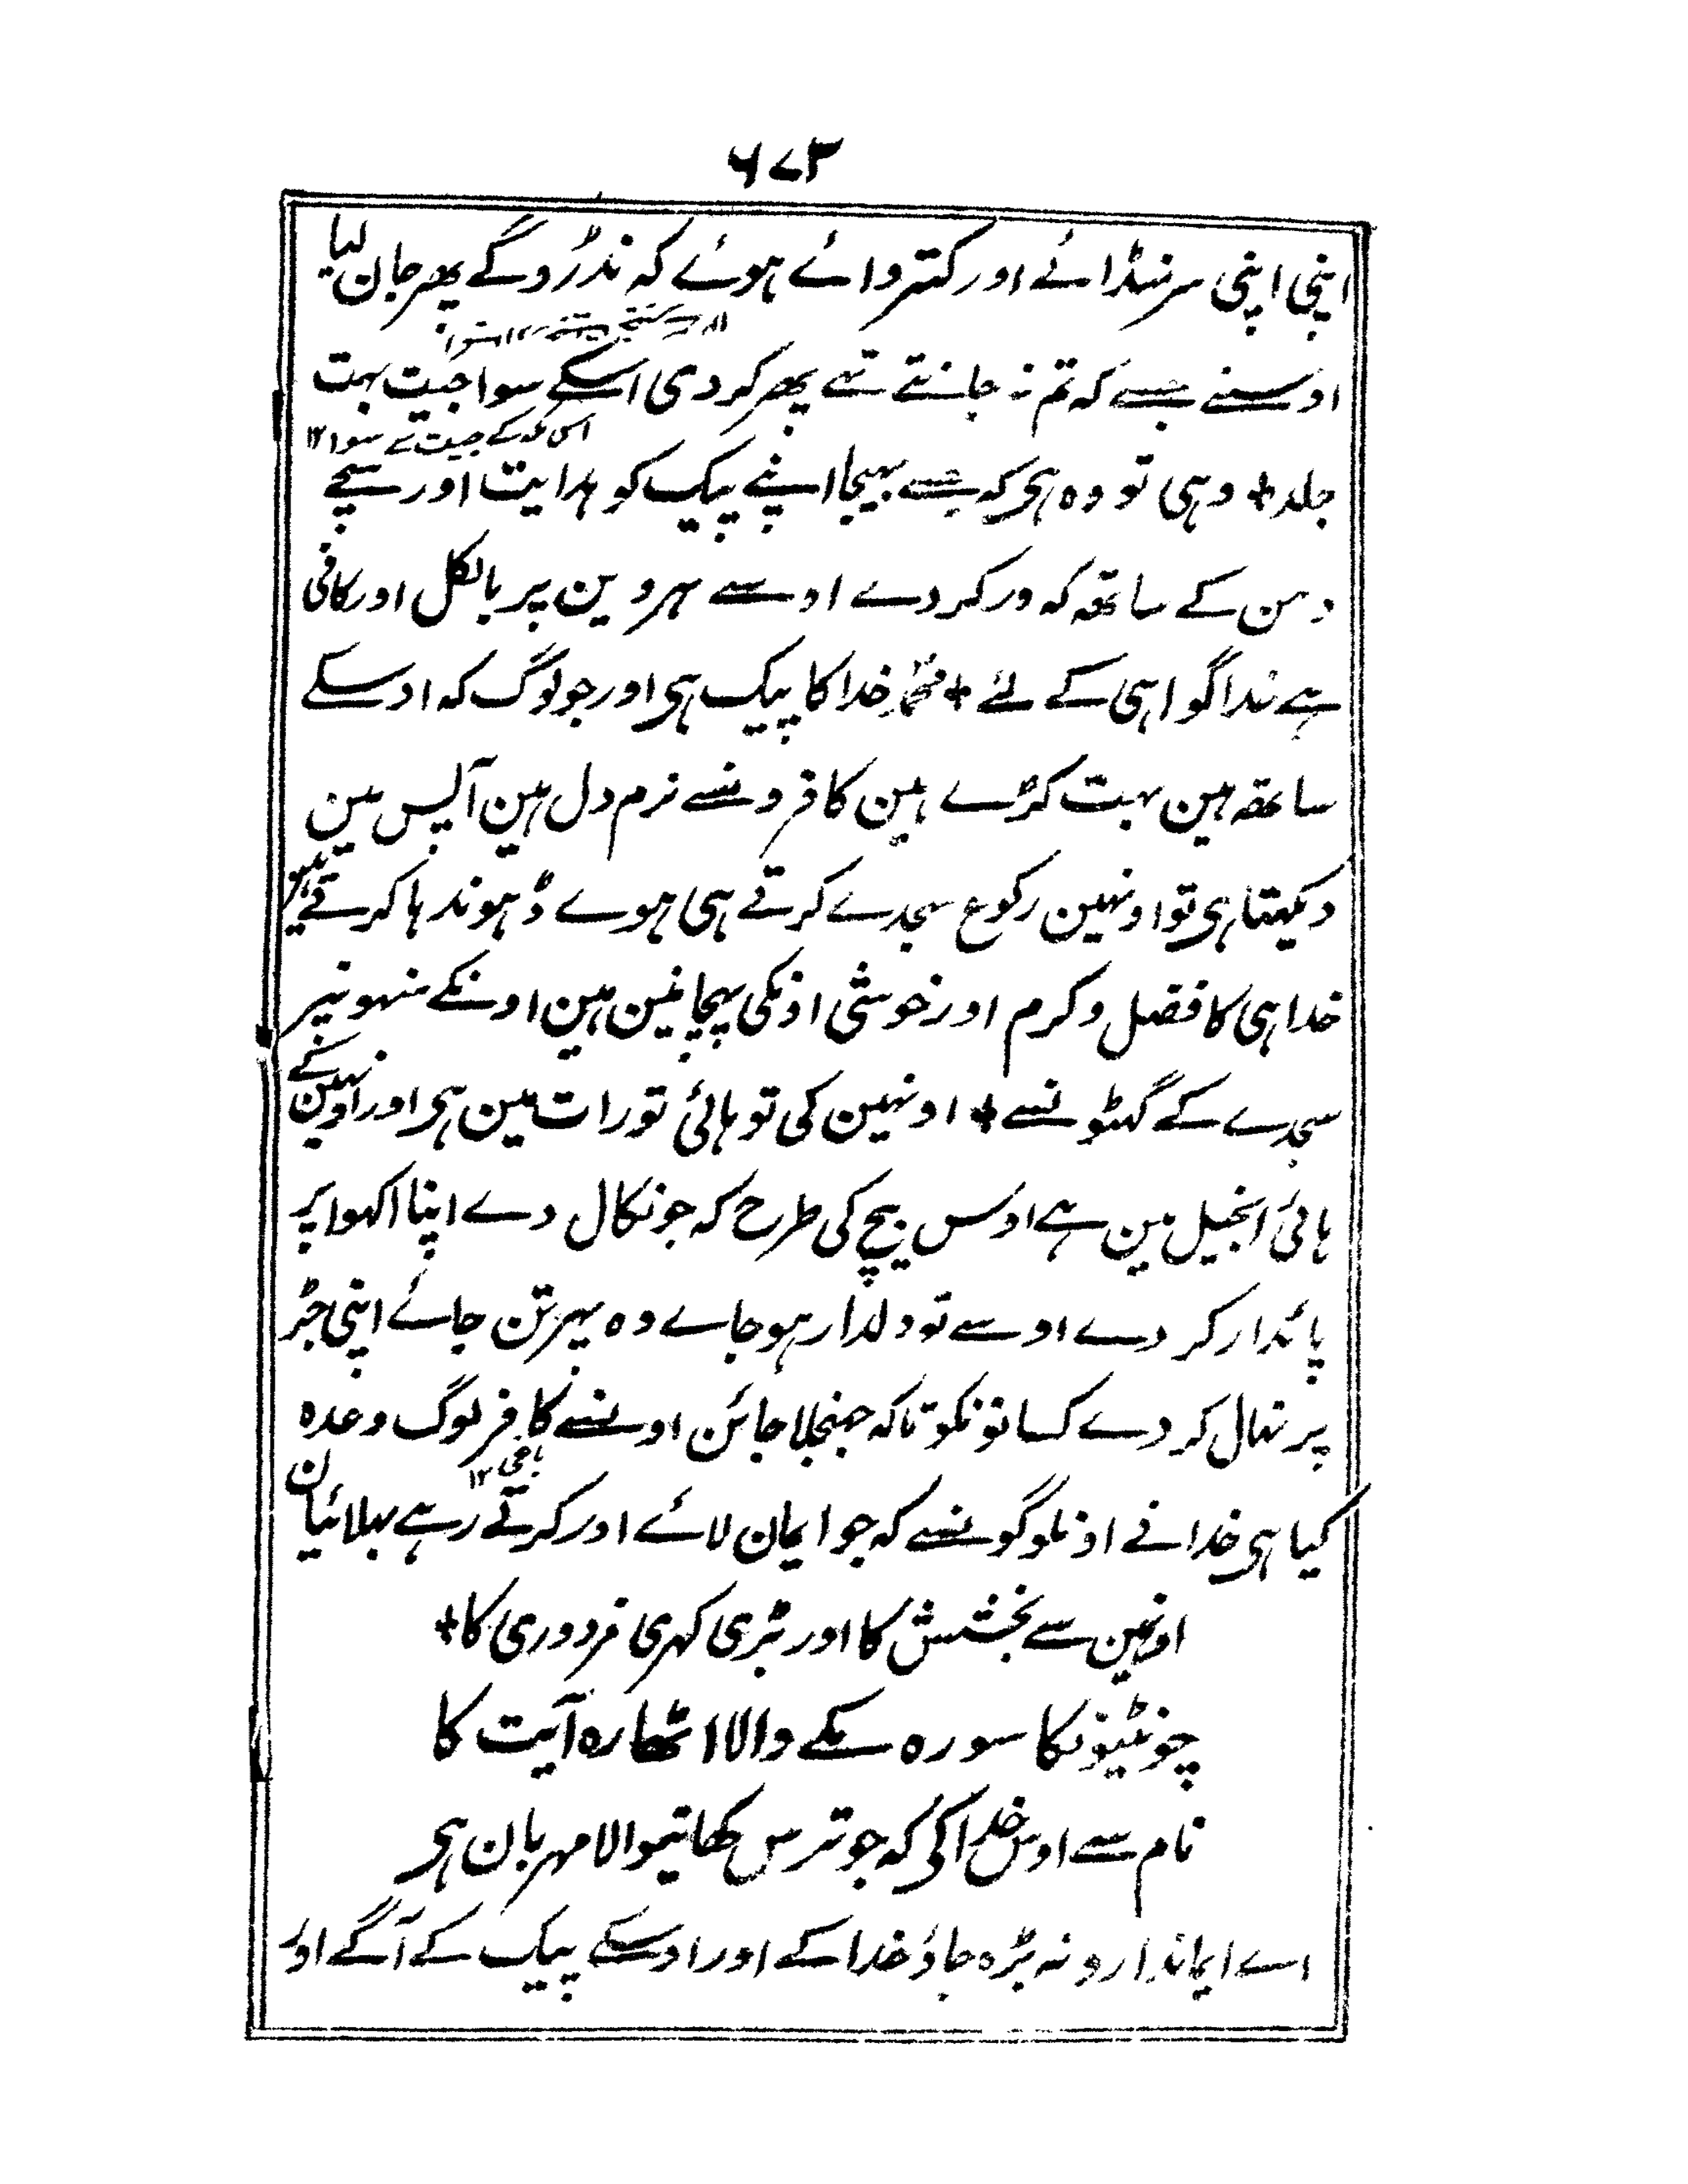 ۶۷۳
اپنی اپنی سر منڈائے اور کتروائے ہوئے کہ نڈروگے پھر جان لیا
اوسنے جسے کہ تم نہ جانتے تھے پھر کردی اسکے سوا جیت بہت
اس مکہ کے جیت کے سوا ۱۲
جلد + وہی تو وہ ہی کہ جسنے بہیجا اپنے پیک کو ہدایت اور سچے
دین کے ساتھ کہ ور کردے اوسے ہر دین پر بالکل اور کافی
ہے خدا گواہی کے لئے + محمد خدا کا پیک ہی اور جو لوگ کہ اوسکے
ساتھ ہین بہت کڑے ہین کافرونسے نرم دل ہین آپس مین
دیکھتا ہی تو اونہین رکوع سجدے کرتے ہی ہوے ڈہونڈہا کرتے ہین
خدا ہی کا فضل و کرم اور خوشی اونکی پہچانین ہین اونکے منہونپر
سجدے کے گہٹونسے + اونہین کی توہائی تورات مین ہی اور اونہین کے
ہائی انجیل مین ہے اوس بیج کی طرح کہ جو نکال دے اپنا اکہوا پر
پائدار کر دے اوسے تو دلدار ہو جاے وہ پہر تن جائے اپنی جڑ
پر نہال کر دے کسانونکو تاکہ جہنجلا جائن اونسے کافر لوگ وعدہ
باقی ۱۲
کیا ہی خدا نے اون لوگونسے کہ جو ایمان لائے اور کرتے رہے بہلائیان
اونہین سے بخشش کا اور بڑی کہری مزدوری کا +
چونٹیونکا سورہ مکے والا اٹھارہ آیت کا
نام سے اوس خدا کی کہ جو ترس کھانیوالا مہربان ہی
اے ایماندارو نہ بڑہ جاؤ خدا کے اور اوسکے پیک کے آگے اور